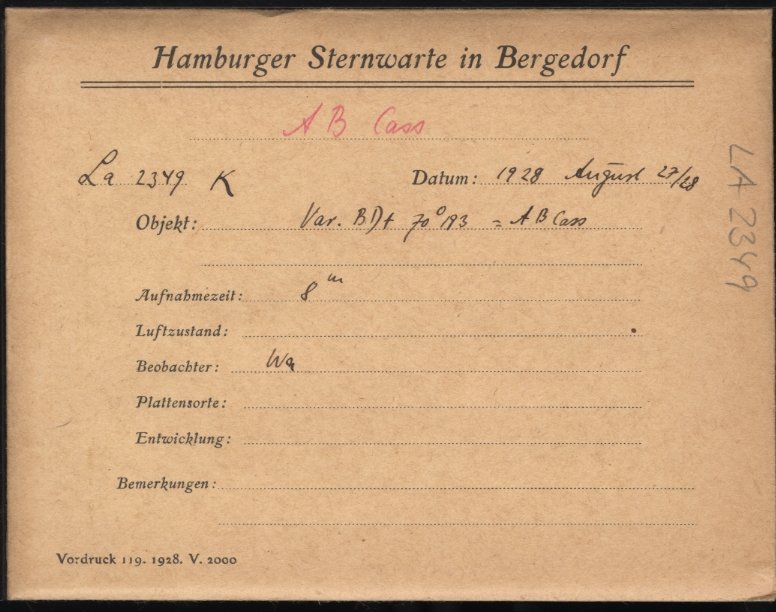 Hamburger Sternwarte in Bergedorf
A B Cass
La 2349 K Datum: 1928 August 27/28
Objekt: Var. BD + 70° 193 = A B Cass
Aufnahmezeit: 8 m
Luftzustand:
Beobachter: Wa
Plattensorte:
Entwicklung:
Bemerkungen:
Vordruck 119. 1928. V. 2000
LA 2349